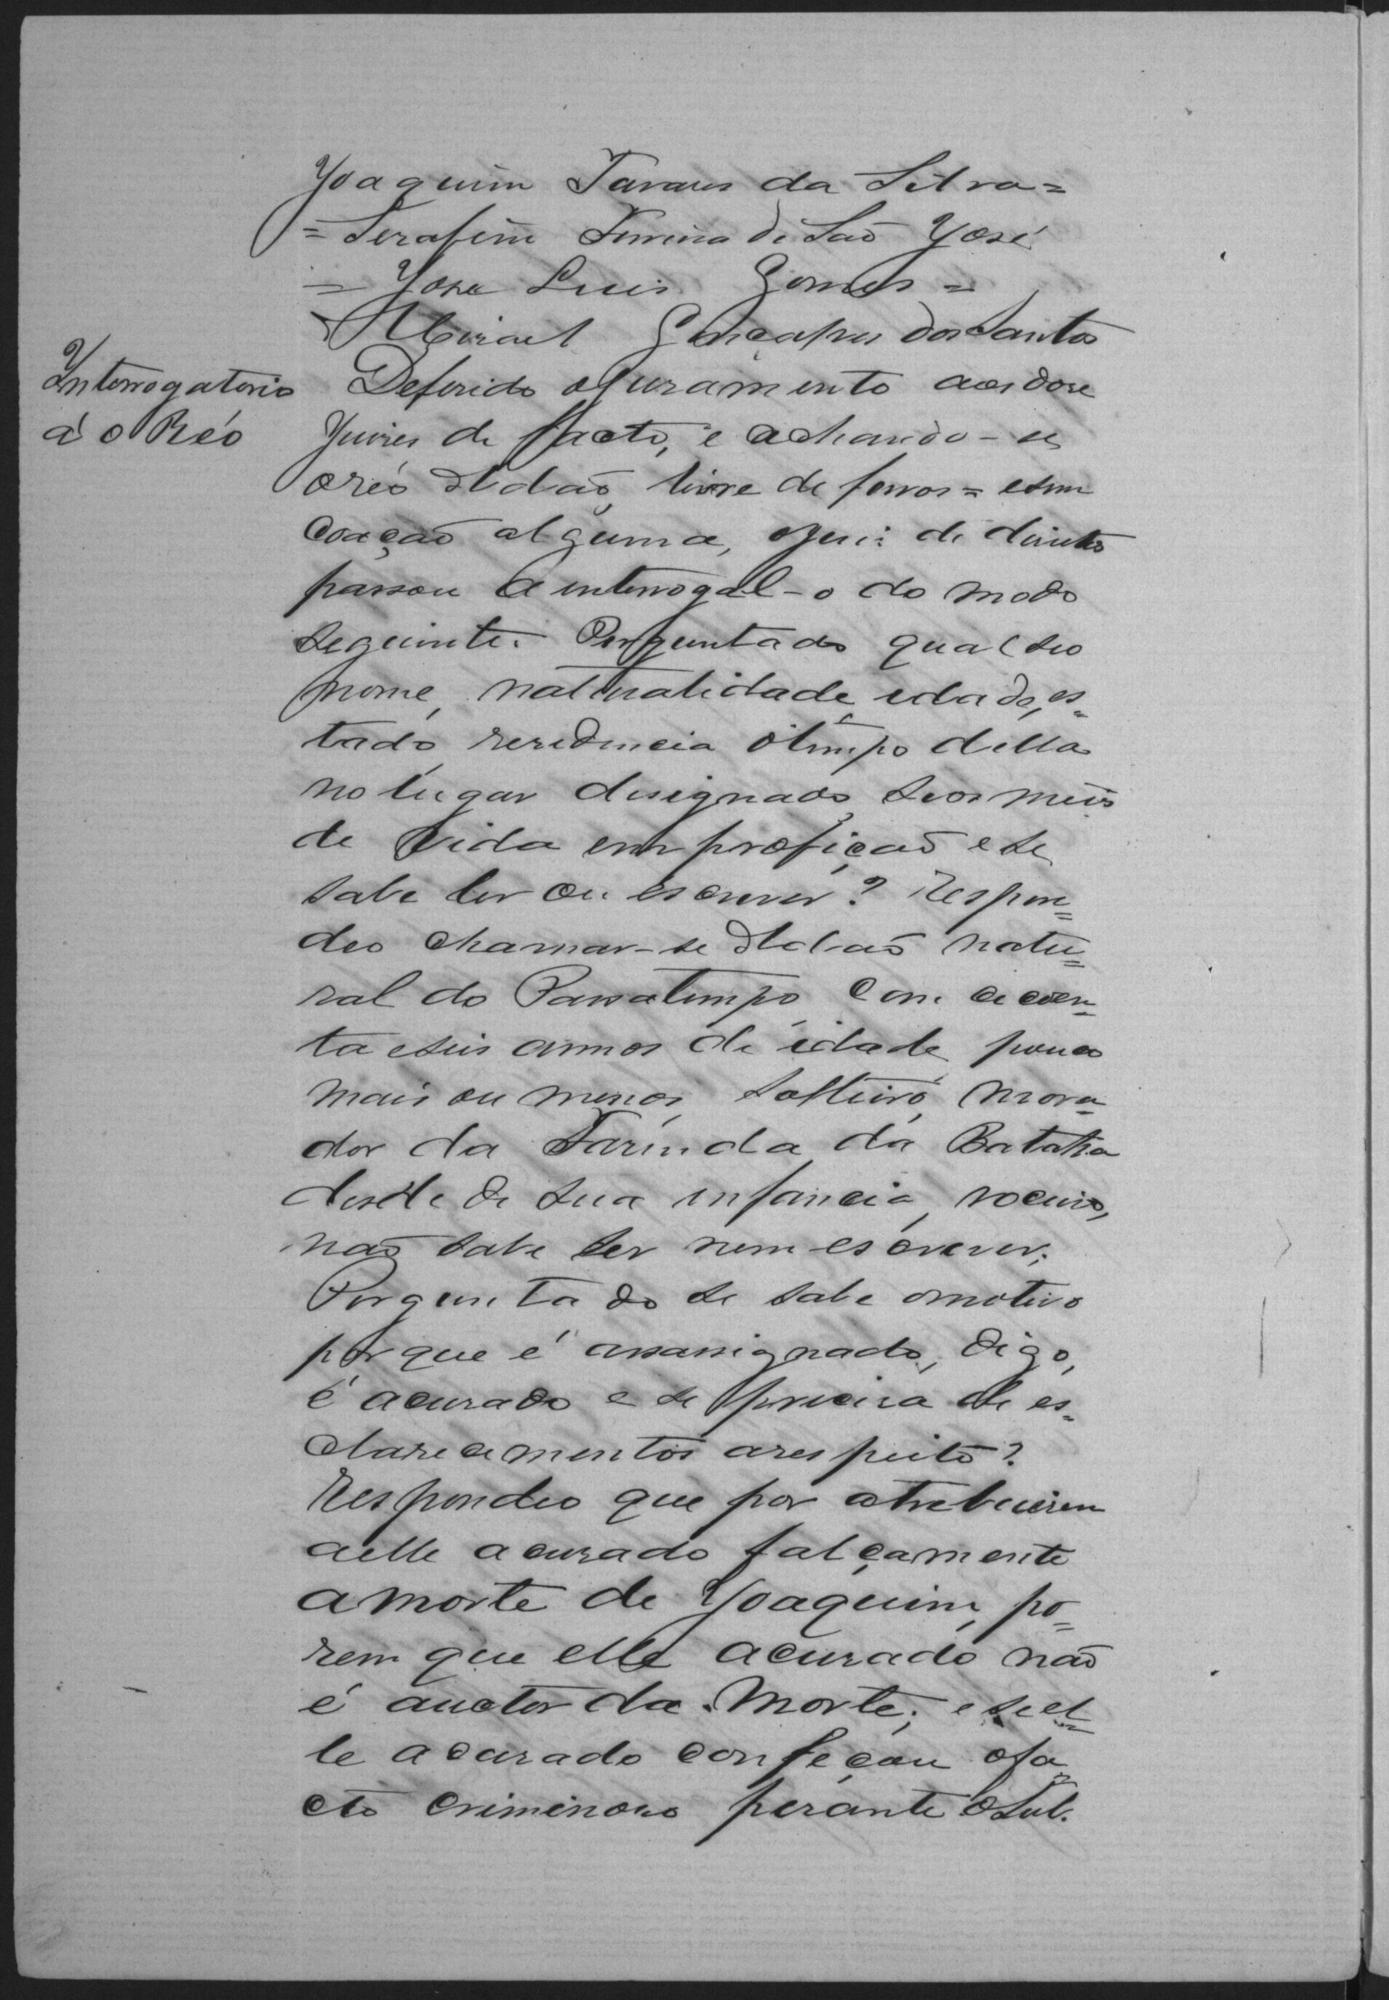 Joaquim Tavares da Silva =
= Serafim Ferreira de São José
= Jose Luis Gomes =
Misael Gonçalves dos Santos
Interrogatorio
á o Réo
Deferido o juramento aos dose
Juises de facto, e achando-se
o réo Adão, livre de ferros = e sem
coação alguma, o juiz de direito
passou a interrogal-o do modo
seguinte. Perguntado qual seo
nome, naturalidade, idade, es=
tado, residencia o tempo della
no lugar designado, seos meios
de vida em profição e se
sabe ler ou escrever? Respon=
deo chamar-se Adão natu=
ral do Passatempo, com cicoen=
ta e seis annos de idade, pouco
mais ou menos, solteiro, mora=
dor da Fazenda da Batalha
desde de sua infancia, roceiro,
não sabe ler nem escrever;
Perguntado se sabe o motivo
por que é assassignado, digo,
é acusado e se precisa de es=
clarecimentos a respeito?
Respondeo que por atrebuirem
a elle acusado falçamente
a morte de Joaquim, po=
rem que elle acusado não
é auctor da morte; e se el=
le acusado confeçou o fa=
cto criminoso perante o Sub.